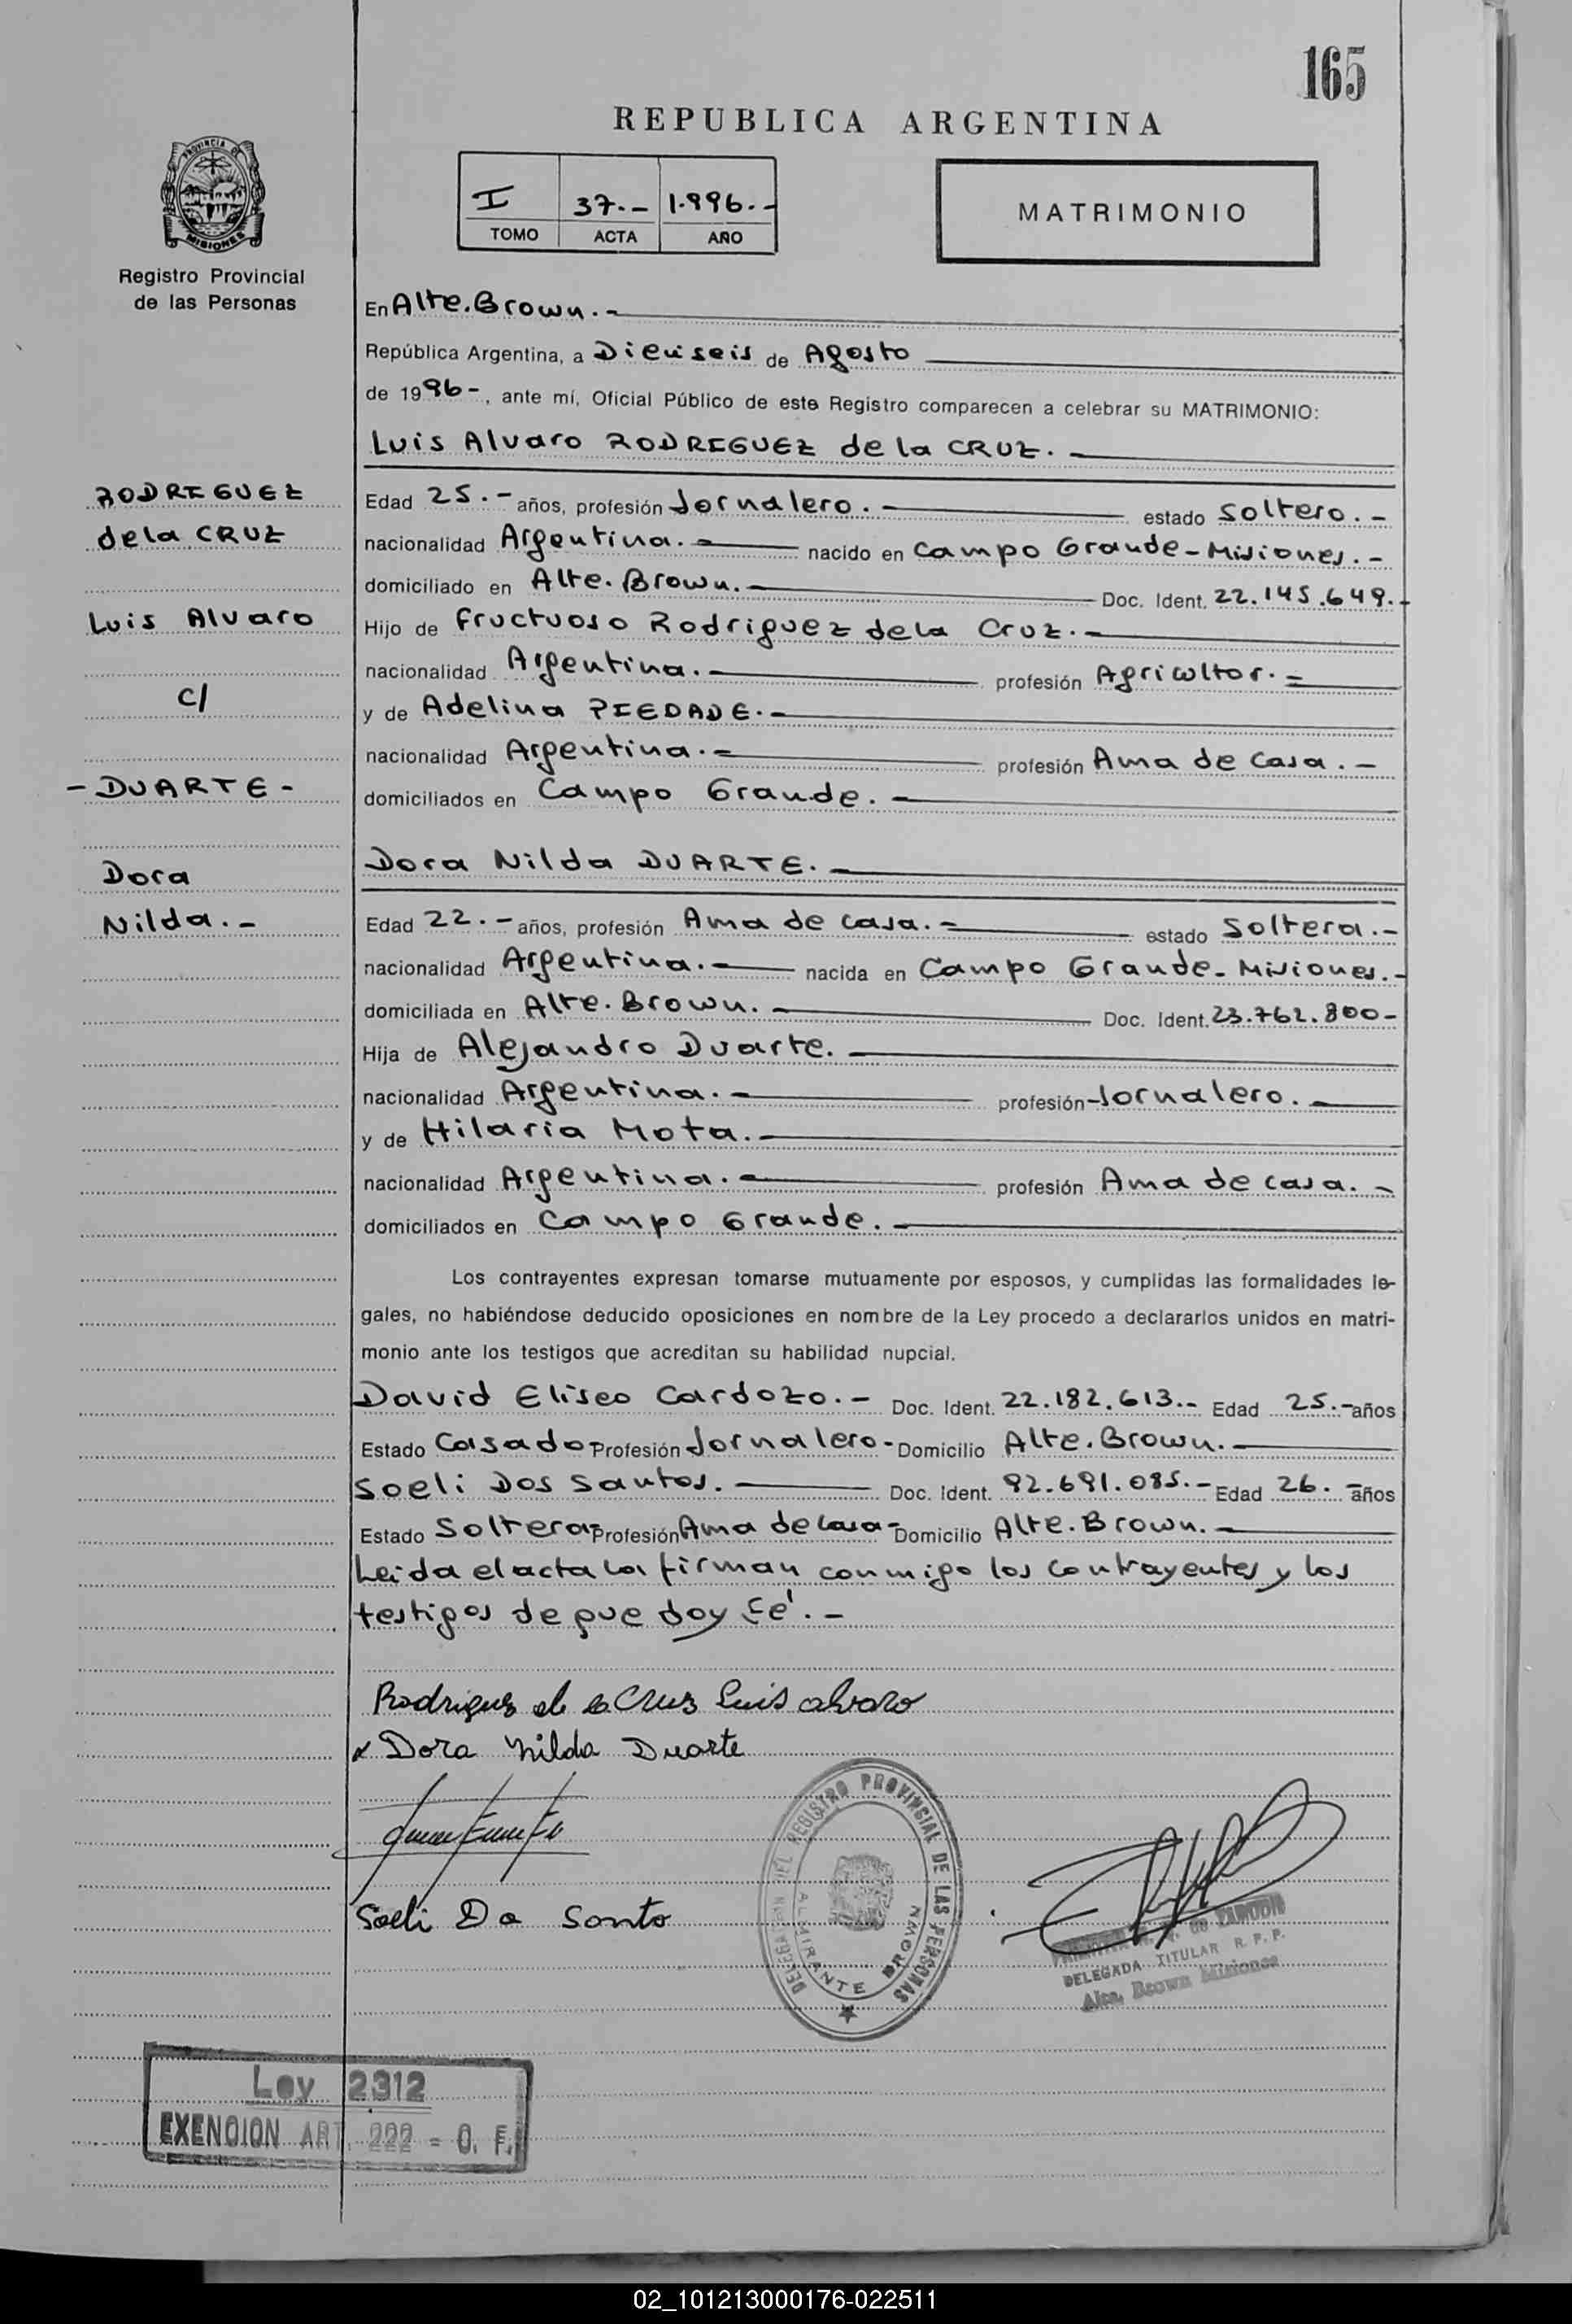 165
REPUBLICA ARGENTINA
PROVINCIA DE
MISIONES
I 37.- 1.996.-
TOMO ACTA AÑO
MATRIMONIO
Registro Provincial
de las Personas
En Alte. Brown.-
República Argentina, a Dieciseis de Agosto
de 1996-, ante mí, Oficial Público de este Registro comparecen a celebrar su MATRIMONIO:
Luis Alvaro RODRIGUEZ de la CRUZ.-
RODRIGUEZ
de la CRUZ
Luis Alvaro
c/
- DUARTE -
Dora
Nilda.-
Edad 25.- años, profesión Jornalero.- estado soltero.-
nacionalidad Argentina.- nacido en Campo Grande-Misiones.-
domiciliado en Alte. Brown.- Doc. Ident. 22.145.649.-
Hijo de Fructuoso Rodriguez de la Cruz.-
nacionalidad Argentina.- profesión Agricultor.-
y de Adelina PIEDADE.-
nacionalidad Argentina.- profesión Ama de casa.-
domiciliados en Campo Grande.-
Dora Nilda DUARTE.-
Edad 22.- años, profesión Ama de casa.- estado Soltera.-
nacionalidad Argentina.- nacida en Campo Grande-Misiones.-
domiciliada en Alte. Brown.- Doc. Ident. 23.762.800-
Hija de Alejandro Duarte.-
nacionalidad Argentina.- profesión Jornalero.-
y de Hilaria Mota.-
nacionalidad Argentina.- profesión Ama de casa.-
domiciliados en Campo Grande.-
Los contrayentes expresan tomarse mutuamente por esposos, y cumplidas las formalidades le-
gales, no habiéndose deducido oposiciones en nombre de la Ley procedo a declararlos unidos en matri-
monio ante los testigos que acreditan su habilidad nupcial.
David Eliseo Cardozo.- Doc. Ident. 22.182.613.- Edad 25.- años
Estado Casado Profesión Jornalero- Domicilio Alte. Brown.-
Soeli Dos Santos.- Doc. Ident. 92.691.085.- Edad 26.- años
Estado Soltera- Profesión Ama de Casa- Domicilio Alte. Brown.-
Leida el acta la firman conmigo los contrayentes y los
testigos de que doy fé.-
Rodriguez de la Cruz Luis alvaro
x Dora Nilda Duarte
Soeli Do Santo
DELEGACION DEL REGISTRO PROVINCIAL DE LAS PERSONAS
ALMIRANTE BROWN
de ZARUDIN
DELEGADA TITULAR R. P. P.
Alte. Brown Misiones
Ley 2312
EXENCION ART. 222 = C. F.
02_101213000176-022511